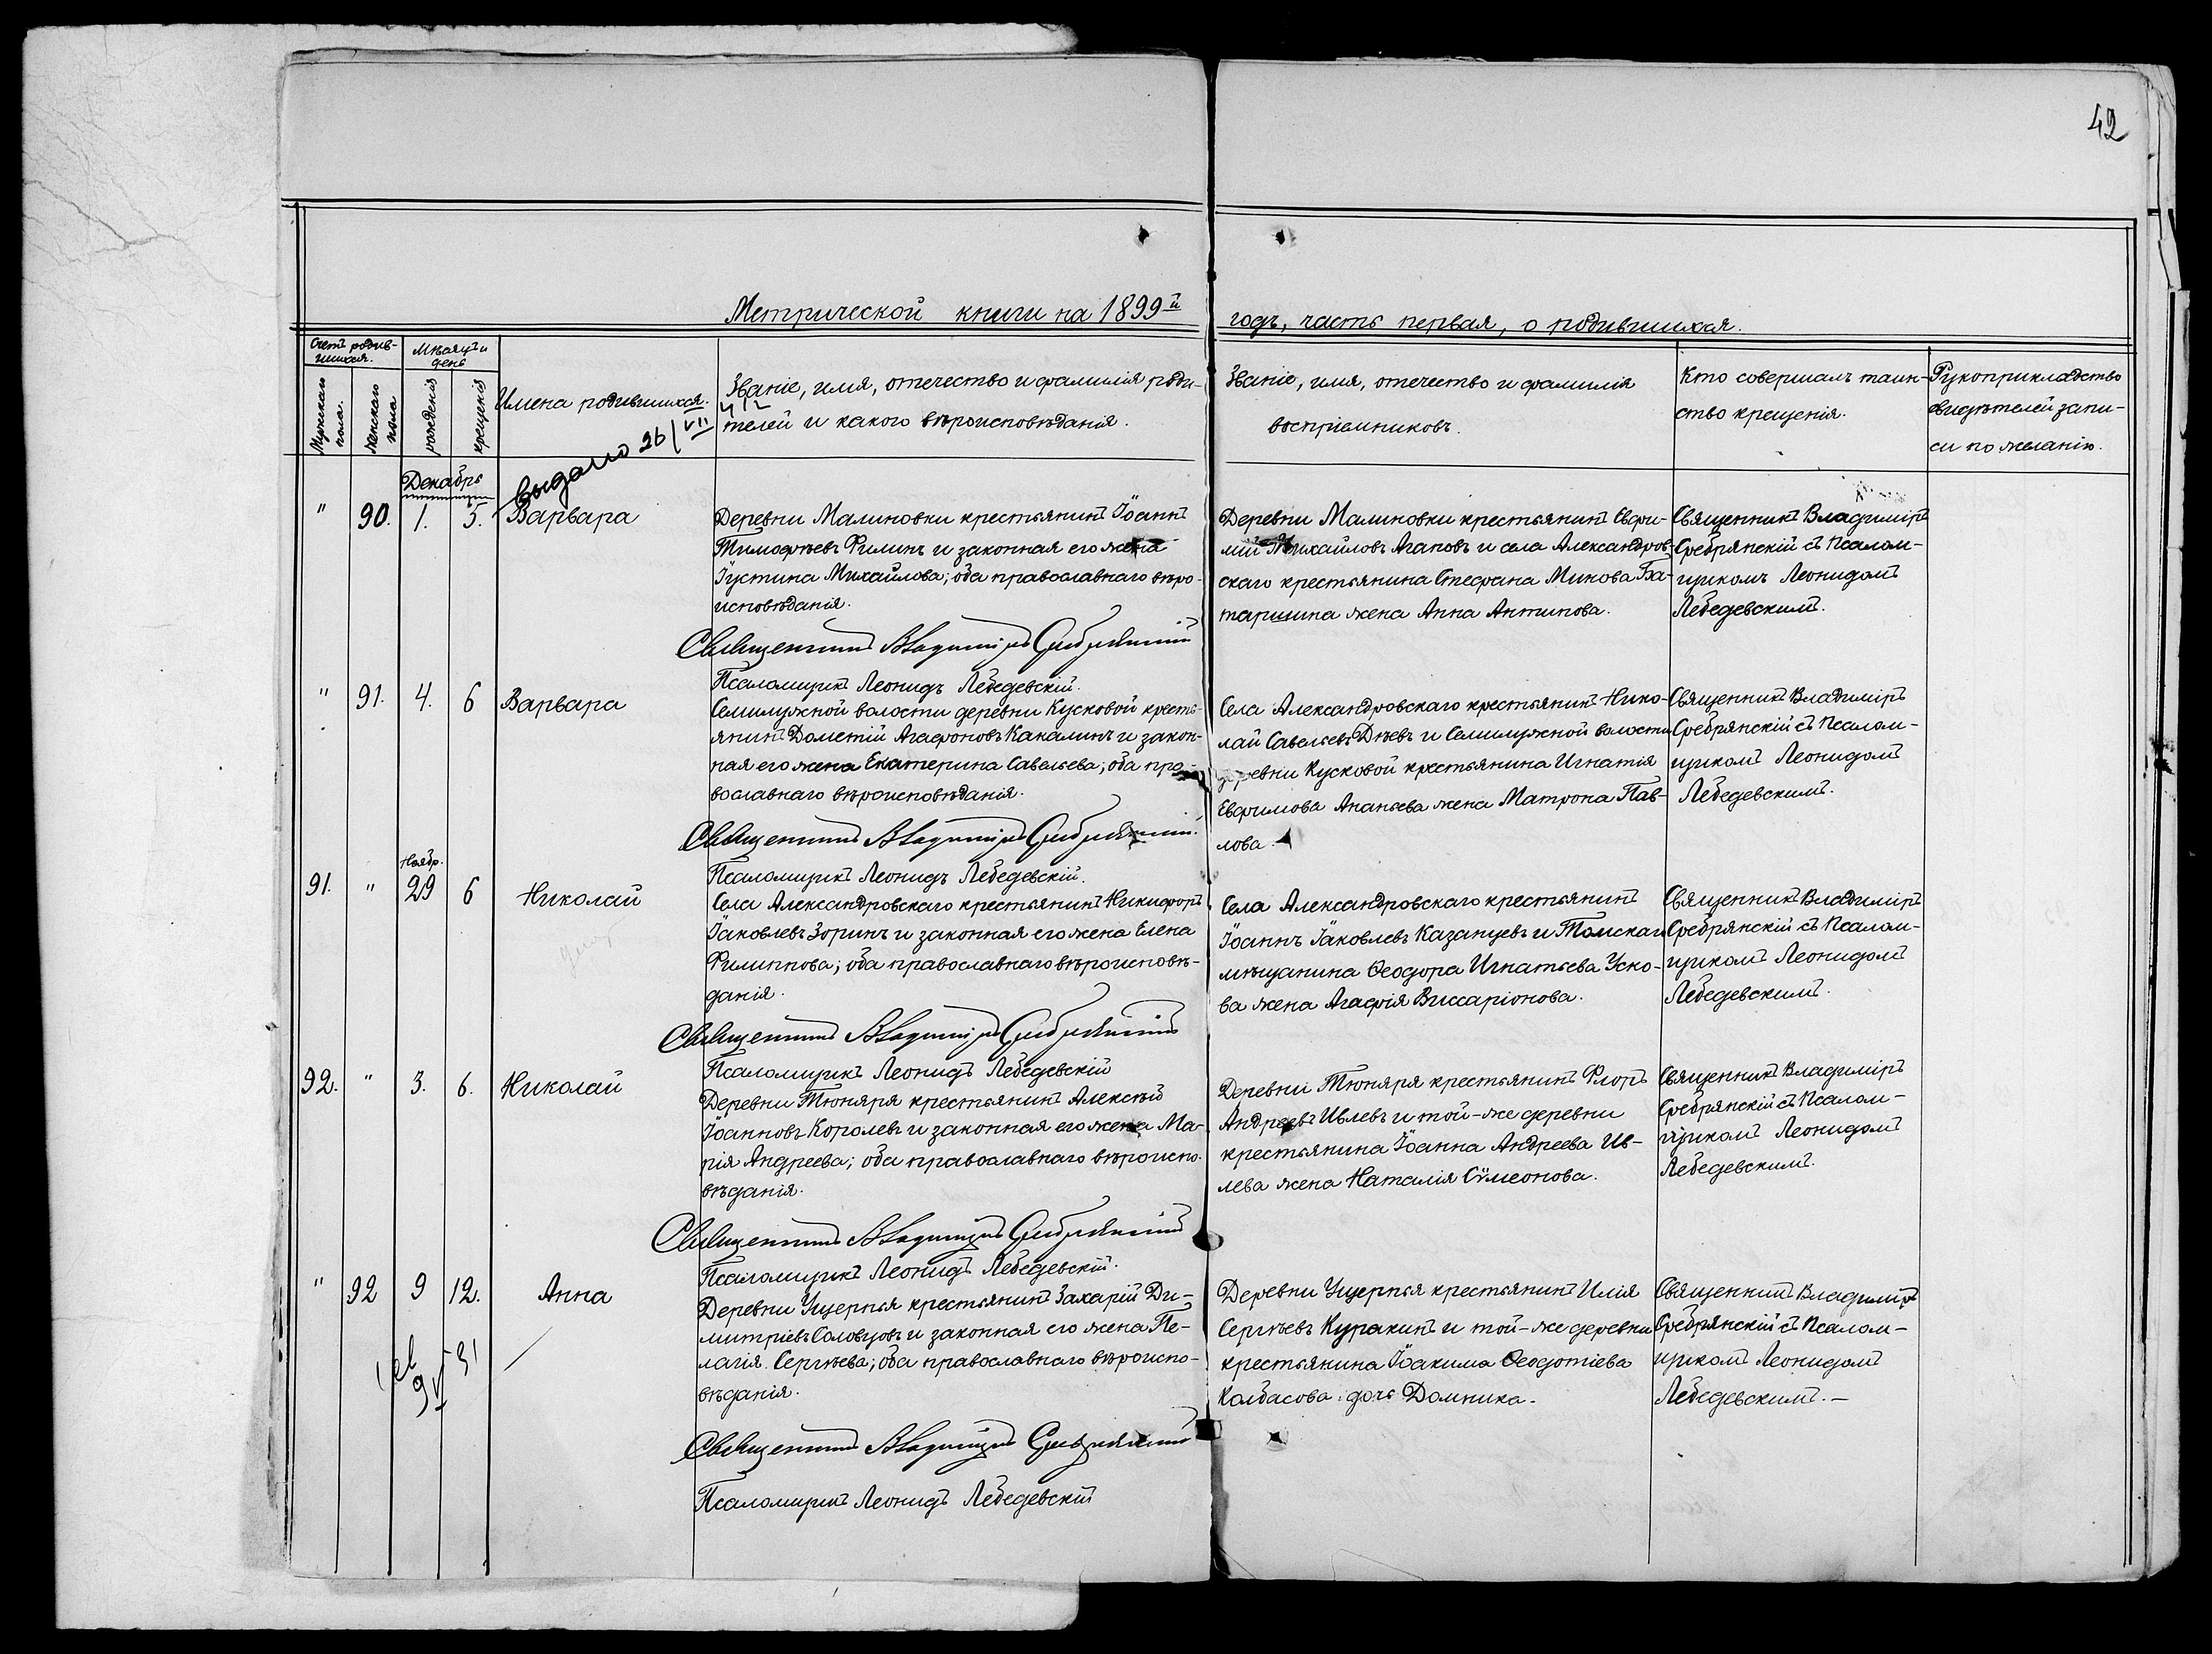 42
Метрической книги на 1899й
годъ, часть первая, о родившихся.
Счетъ родив-
шихся.
Мѣсяцъ и
день
Мужскаго
пола.
Женскаго
пола
рожденія
крещенія
Имена родившихся.
Званіе, имя, отечество и фамилія роди-
телей и какого вѣроисповѣданія.
Званіе, имя, отечество и фамилія
воспріемниковъ.
Кто совершалъ таин-
ство крещенія.
Рукоприкладство
свидѣтелей запи-
си по желанію.
Выдано 26/VII
412
Декабрь
" 90. 1. 5. Варвара
Деревни Малиновки крестьянинъ Іоаннъ
Тимофѣевъ Филинъ и законная его жена
Іустина Михайлова; оба православнаго вѣро-
исповѣданія.
Священникъ Владиміръ Сребрянскій
Псаломщикъ Леонидъ Лебедевскій.
Деревни Малиновки крестьянинъ Евфи-
мій Михайловъ Агаповъ и села Александров-
скаго крестьянина Стефана Микова Ба-
таршина жена Анна Антипова.
Священникъ Владиміръ
Сребрянскій съ Псалом-
щикомъ Леонидомъ
Лебедевскимъ.
" 91. 4. 6 Варвара
Семилужной волости деревни Кусковой кресть-
янинъ Дометій Агафоновъ Какалинъ и закон-
ная его жена Екатерина Савельева; оба пра-
вославнаго вѣроисповѣданія.
Священникъ Владиміръ Сребрянскій.
Псаломщикъ Леонидъ Лебедевскій.
Села Александровскаго крестьянинъ Нико-
лай Савельевъ Днѣвъ и Семилужной волости
деревни Кусковой крестьянина Игнатія
Евфимова Ананьева жена Матрона Пав-
лова.
Священникъ Владиміръ
Сребрянскій съ Псалом-
щикомъ Леонидомъ
Лебедевскимъ.
Ноябр.
91. " 29 6 Николай
Села Александровскаго крестьянинъ Никифоръ
Іаковлевъ Зоринъ и законная его жена Елена
Филиппова; оба православнаго вѣроисповѣ-
данія.
Священникъ Владиміръ Сребрянскій
Псаломщикъ Леонидъ Лебедевскій
Села Александровскаго крестьянинъ
Іоаннъ Іаковлевъ Казанцевъ и Томскаго
мѣщанина Ѳеодора Игнатьева Уско-
ва жена Агафія Виссаріонова.
Священникъ Владиміръ
Сребрянскій съ Псалом-
щикомъ Леонидомъ
Лебедевскимъ.
92. " 3. 6. Николай
Деревни Тюняря крестьянинъ Алексѣй
Іоанновъ Королевъ и законная его жена Ма-
рія Андреева; оба православнаго вѣроиспо-
вѣданія.
Священникъ Владиміръ Сребрянскій
Псаломщикъ Леонидъ Лебедевскій.
Деревни Тюняря крестьянинъ Флоръ
Андреевъ Ивлевъ и той-же деревни
крестьянина Іоанна Андреева Ив-
лева жена Наталія Сѵмеонова.
Священникъ Владиміръ
Сребрянскій съ Псалом-
щикомъ Леонидомъ
Лебедевскимъ.
" 92 9 12. Анна
Деревни Ущерпья крестьянинъ Захарій Ди-
митріевъ Соловцовъ и законная его жена Пе-
лагія Сергѣева; оба православнаго вѣроиспо-
вѣданія.
Священникъ Владиміръ Сребрянскій
Псаломщикъ Леонидъ Лебедевскій
Деревни Ущерпья крестьянинъ Илія
Сергѣевъ Куракинъ и той-же деревни
крестьянина Іоакима Ѳеодотіева
Колбасова дочь Домника.
Священникъ Владиміръ
Сребрянскій съ Псалом-
щикомъ Леонидомъ
Лебедевскимъ. —